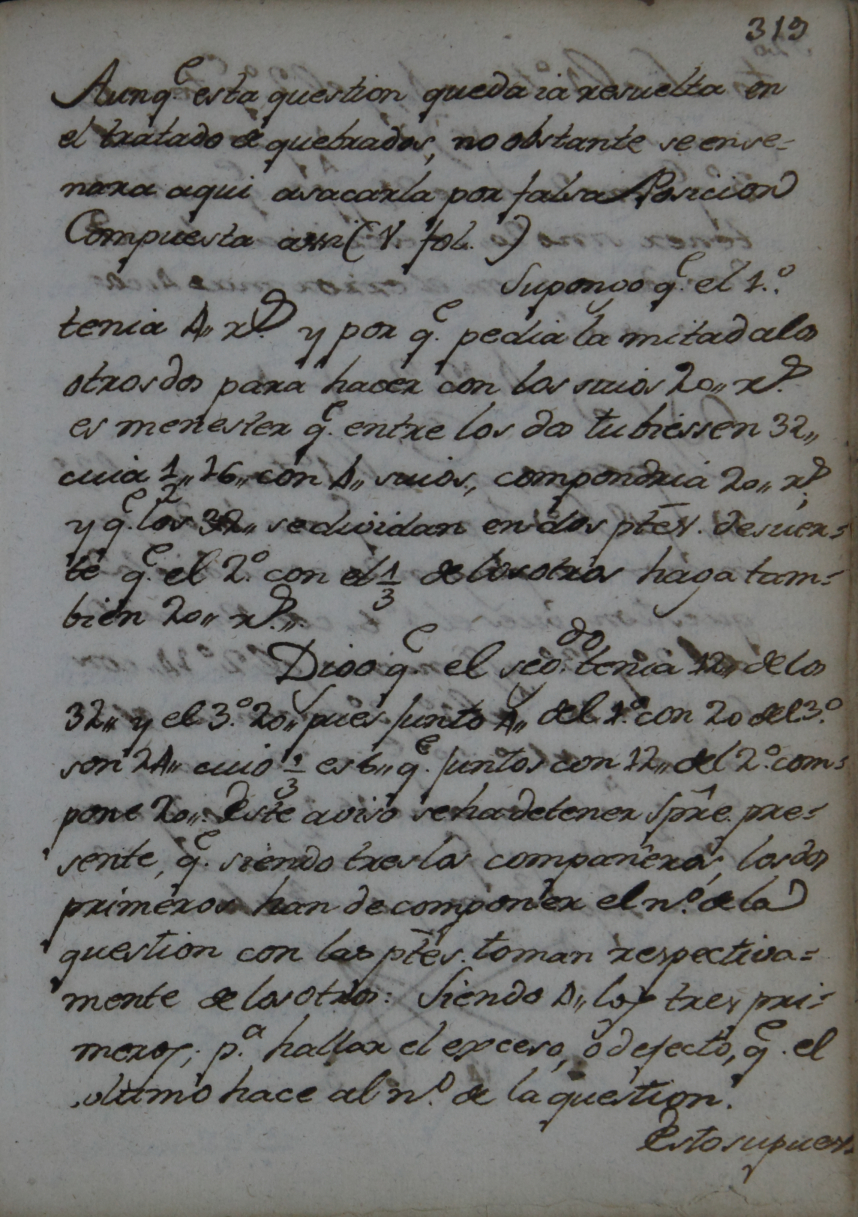 319
Aunq.e esta question queda ia resuelta en
el tratado de quebrados, no obstante se ense-
ñara aqui asacarla por falsa Posicion
Compuesta assi (V. fol. )
Supongo q.e el 1.º
tenia 4,, r.s y por q.e pedia la mitad alos
otros dos para hacer con los suios 20,, r.s
es menester q.e entre los dos tubiessen 32,,
cuia 1/2,, 16,, con 4,, suios, compondria 20,, r.s
y q.e los 32,, se dividan en dos ptes. desuer=
te q.e el 2.º con el 1/3 de los otros haga tam=
bien 20,, r.s,,
Digo q.e el seg.do tenia 12,, de los
32,, y el 3.º 20,, pues junto 4,, del 1.º con 20 del 3.º
son 24,, cuio 1/3 es 8,, q.e juntos con 12,, del 2.º com=
pone 20,,. Este aviso se ha detener spre. pre=
sente, q.e siendo tres los compañeros, los dos
primeros han de componer el n.º de la
question con las ptes. toman respectiva=
mente de los otros: Siendo 4,, los tres pri=
meros; p.a hallar el exceso, ò defecto, q.e el
ultimo hace al n.º de la question.
Esto supues=